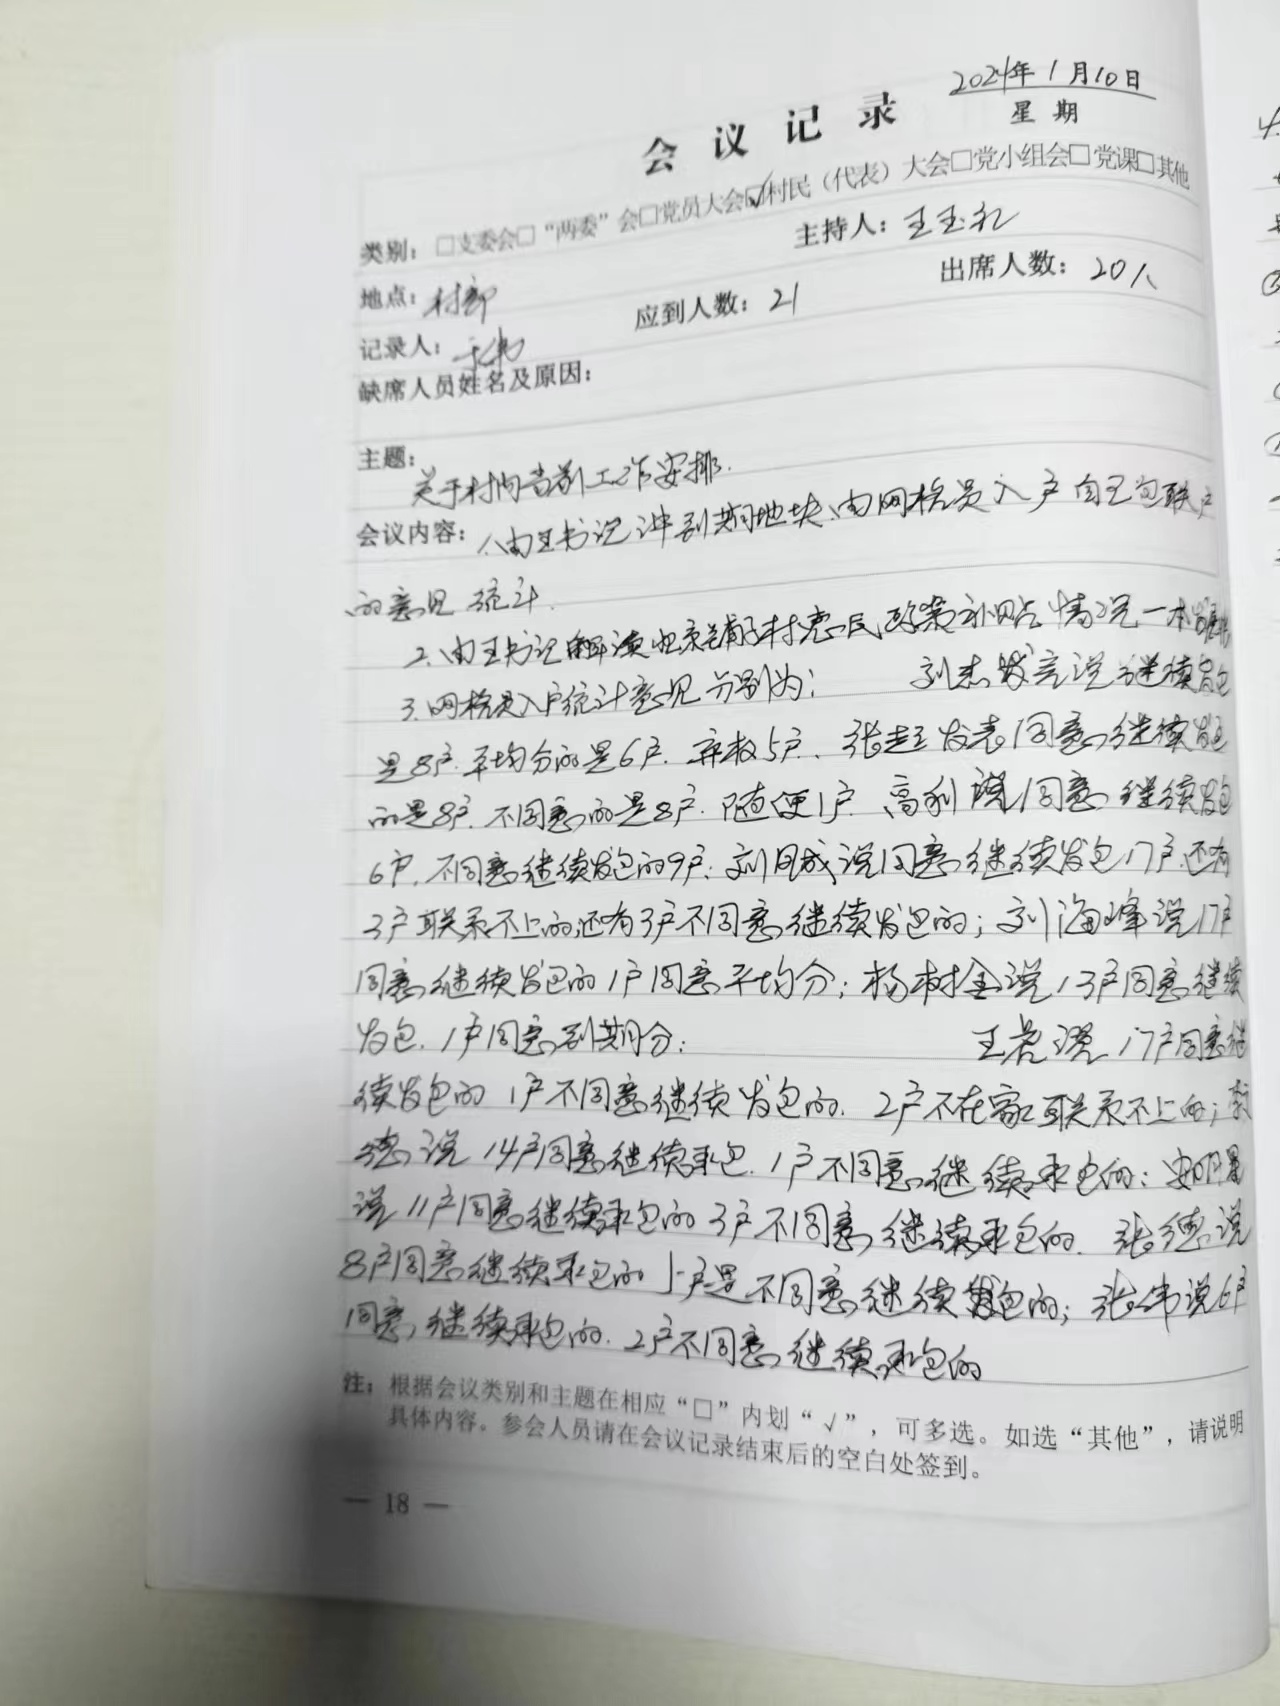 2024年1月10日
会议记录 星期
类别：□支委会□“两委”会□党员大会☑村民（代表）大会□党小组会□党课□其他
地点：村部 主持人：王玉礼
记录人： 应到人数：21 出席人数：20人
缺席人员姓名及原因：
主题：
关于村内当前工作安排.
会议内容：1、由王书记讲到期地块、由网格员入户自己包联户
的意见统计.
2、由王书记解读 铺子村惠民政策补贴点情况一本
3、网格员入户统计意见分别为： 刘杰发言说继续发包
是8户.平均分的是6户.弃权5户、张超发表同意继续发包
的是8户.不同意的是8户.随便1户.高利说同意继续发包
6户.不同意继续发包的9户；刘 成说同意继续发包17户.还有
3户联系不上的还有3户不同意继续发包的；刘海峰说17户
同意继续发包的1户同意平均分；杨树金说13户同意继续
发包.1户同意到期分； 王 说17户同意继
续发包的1户不同意继续发包的.2户不在家联系不上的；
德说14户同意继续承包.1户不同意继续承包的；安明
说11户同意继续承包的3户不同意继续承包的.张德说
8户同意继续承包的 户是不同意继续 包的；张伟说6户
同意继续承包的.2户不同意继续承包的
注：根据会议类别和主题在相应“□”内划“√”，可多选。如选“其他”，请说明
具体内容。参会人员请在会议记录结束后的空白处签到。
— 18 —